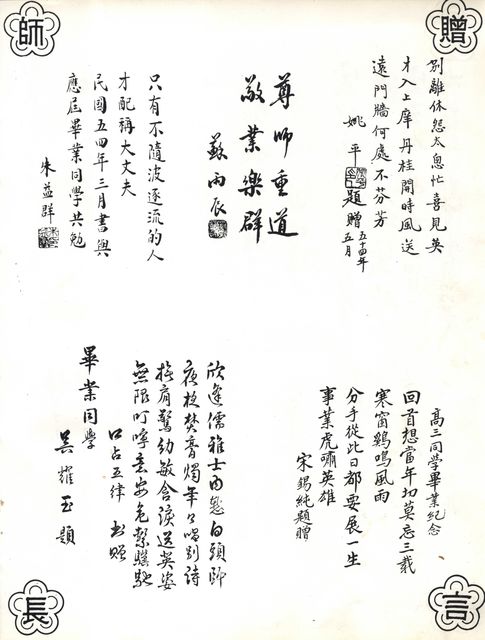 師
贈
別離休怨太息忙喜見英
才入上庠丹桂開時風送
遠門牆何處不芬芳
姚平題贈
五十四年
五月
尊師重道
敬業樂群
蘇雨辰
只有不隨波逐流的人
才配稱大丈夫
民國五四年三月書與
應屆畢業同學共勉
朱益群
高三同學畢業紀念
回首想當年切莫忘三載
寒窗鷄鳴風雨
分手從此日都要展一生
事業虎嘯英雄
宋錫純題贈
欣逢儒雅士 白頭師
夜校焚膏燭年年唱別詩
幼敏含淚送英姿
無限叮嚀意安危繫驥馳
口占五律 書贈
畢業同學
吳耀玉題
長
言